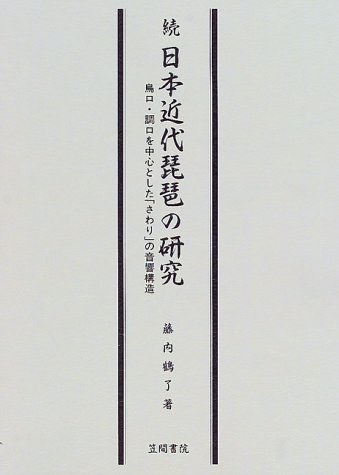 続 日本近代琵琶の研究
鳥口・調口を中心とした「さわり」の音響構造
藤内鶴了著
笠間書院